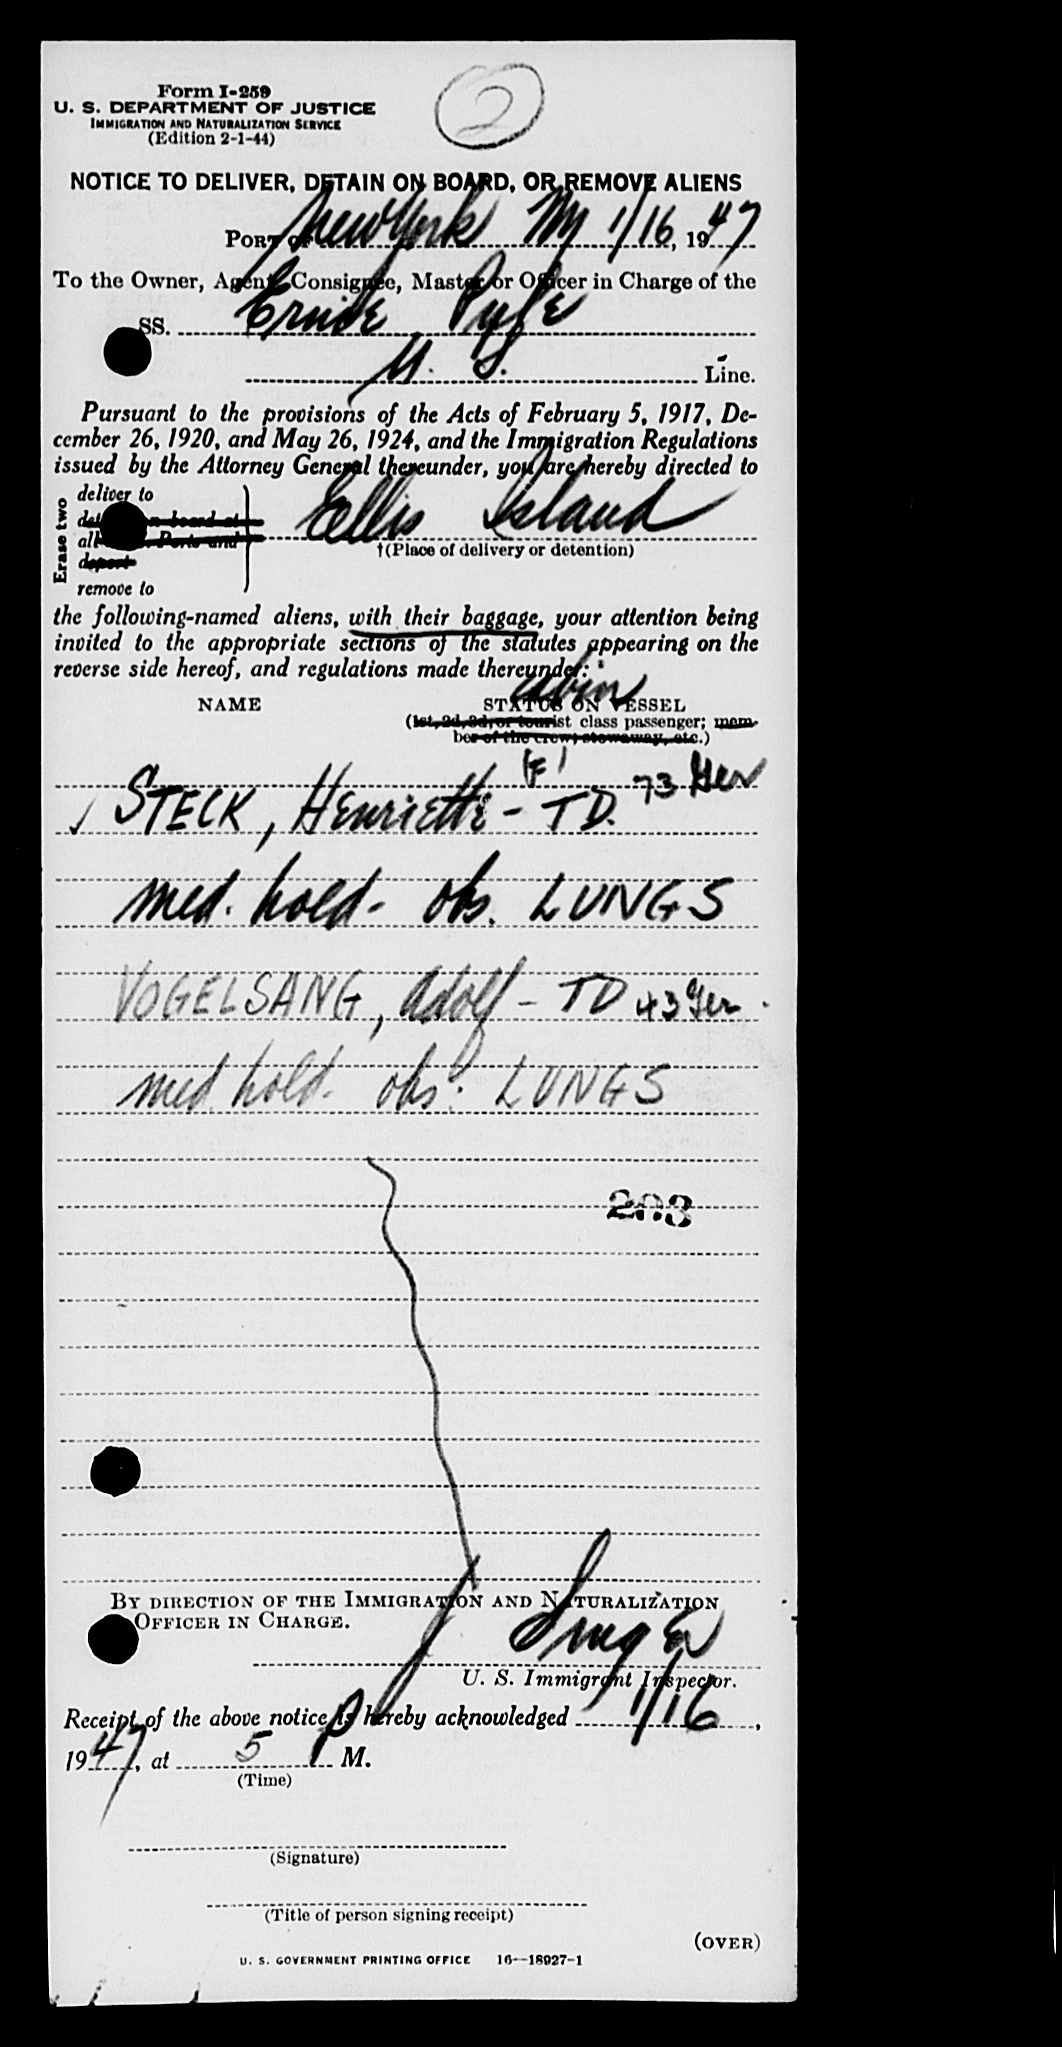 2
Form I-259
U. S. DEPARTMENT OF JUSTICE
IMMIGRATION AND NATURALIZATION SERVICE
(Edition 2-1-44)
NOTICE TO DELIVER, DETAIN ON BOARD, OR REMOVE ALIENS
PORT OF New York NY 1/16, 1947
To the Owner, Agent, Consignee, Master or Officer in Charge of the
SS. Ernie Pyle
U. S. Line.
Pursuant to the provisions of the Acts of February 5, 1917, De-
cember 26, 1920, and May 26, 1924, and the Immigration Regulations
issued by the Attorney General thereunder, you are hereby directed to
Erase two
deliver to
on board at
Ports and
deport
remove to
Ellis Island
†(Place of delivery or detention)
the following-named aliens, with their baggage, your attention being
invited to the appropriate sections of the statutes appearing on the
reverse side hereof, and regulations made thereunder:
cabin
NAME STATUS ON VESSEL
(1st, 2d, 3d, or tourist class passenger; mem-
ber of the crew; stowaway, etc.)
(F) 73 Ger
✓ STECK, Henriette - TD.
med. hold - obs. LUNGS
VOGELSANG, Adolf - TD 43 Ger.
med. hold - obs: LUNGS
203
BY DIRECTION OF THE IMMIGRATION AND NATURALIZATION
OFFICER IN CHARGE.
J Singer
U. S. Immigrant Inspector.
Receipt of the above notice is hereby acknowledged 1/16,
1947, at 5 P M.
(Time)
(Signature)
(Title of person signing receipt)
(OVER)
U. S. GOVERNMENT PRINTING OFFICE 16—18927-1